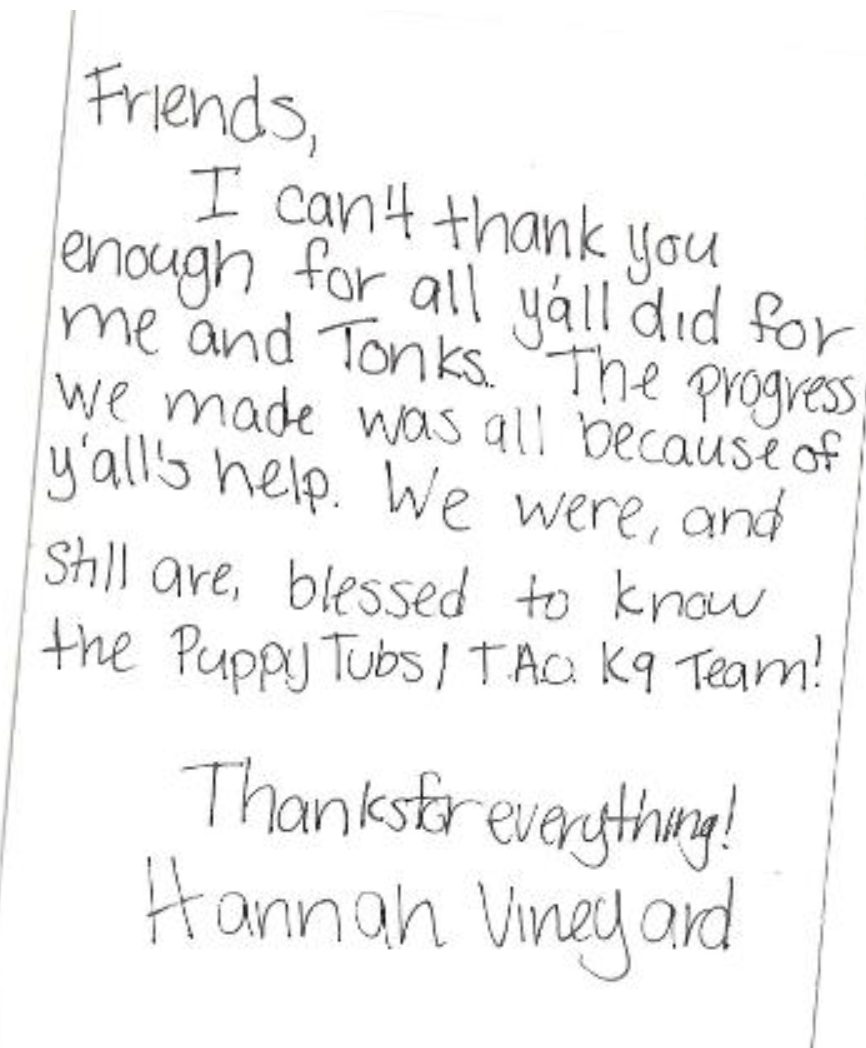 Friends,
I can't thank you
enough for all y'all did for
me and Tonks. The progress
we made was all because of
y'all's help. We were, and
still are, blessed to know
the Puppy Tubs / T.A.O. K9 Team!
Thanks for everything!
Hannah Vineyard